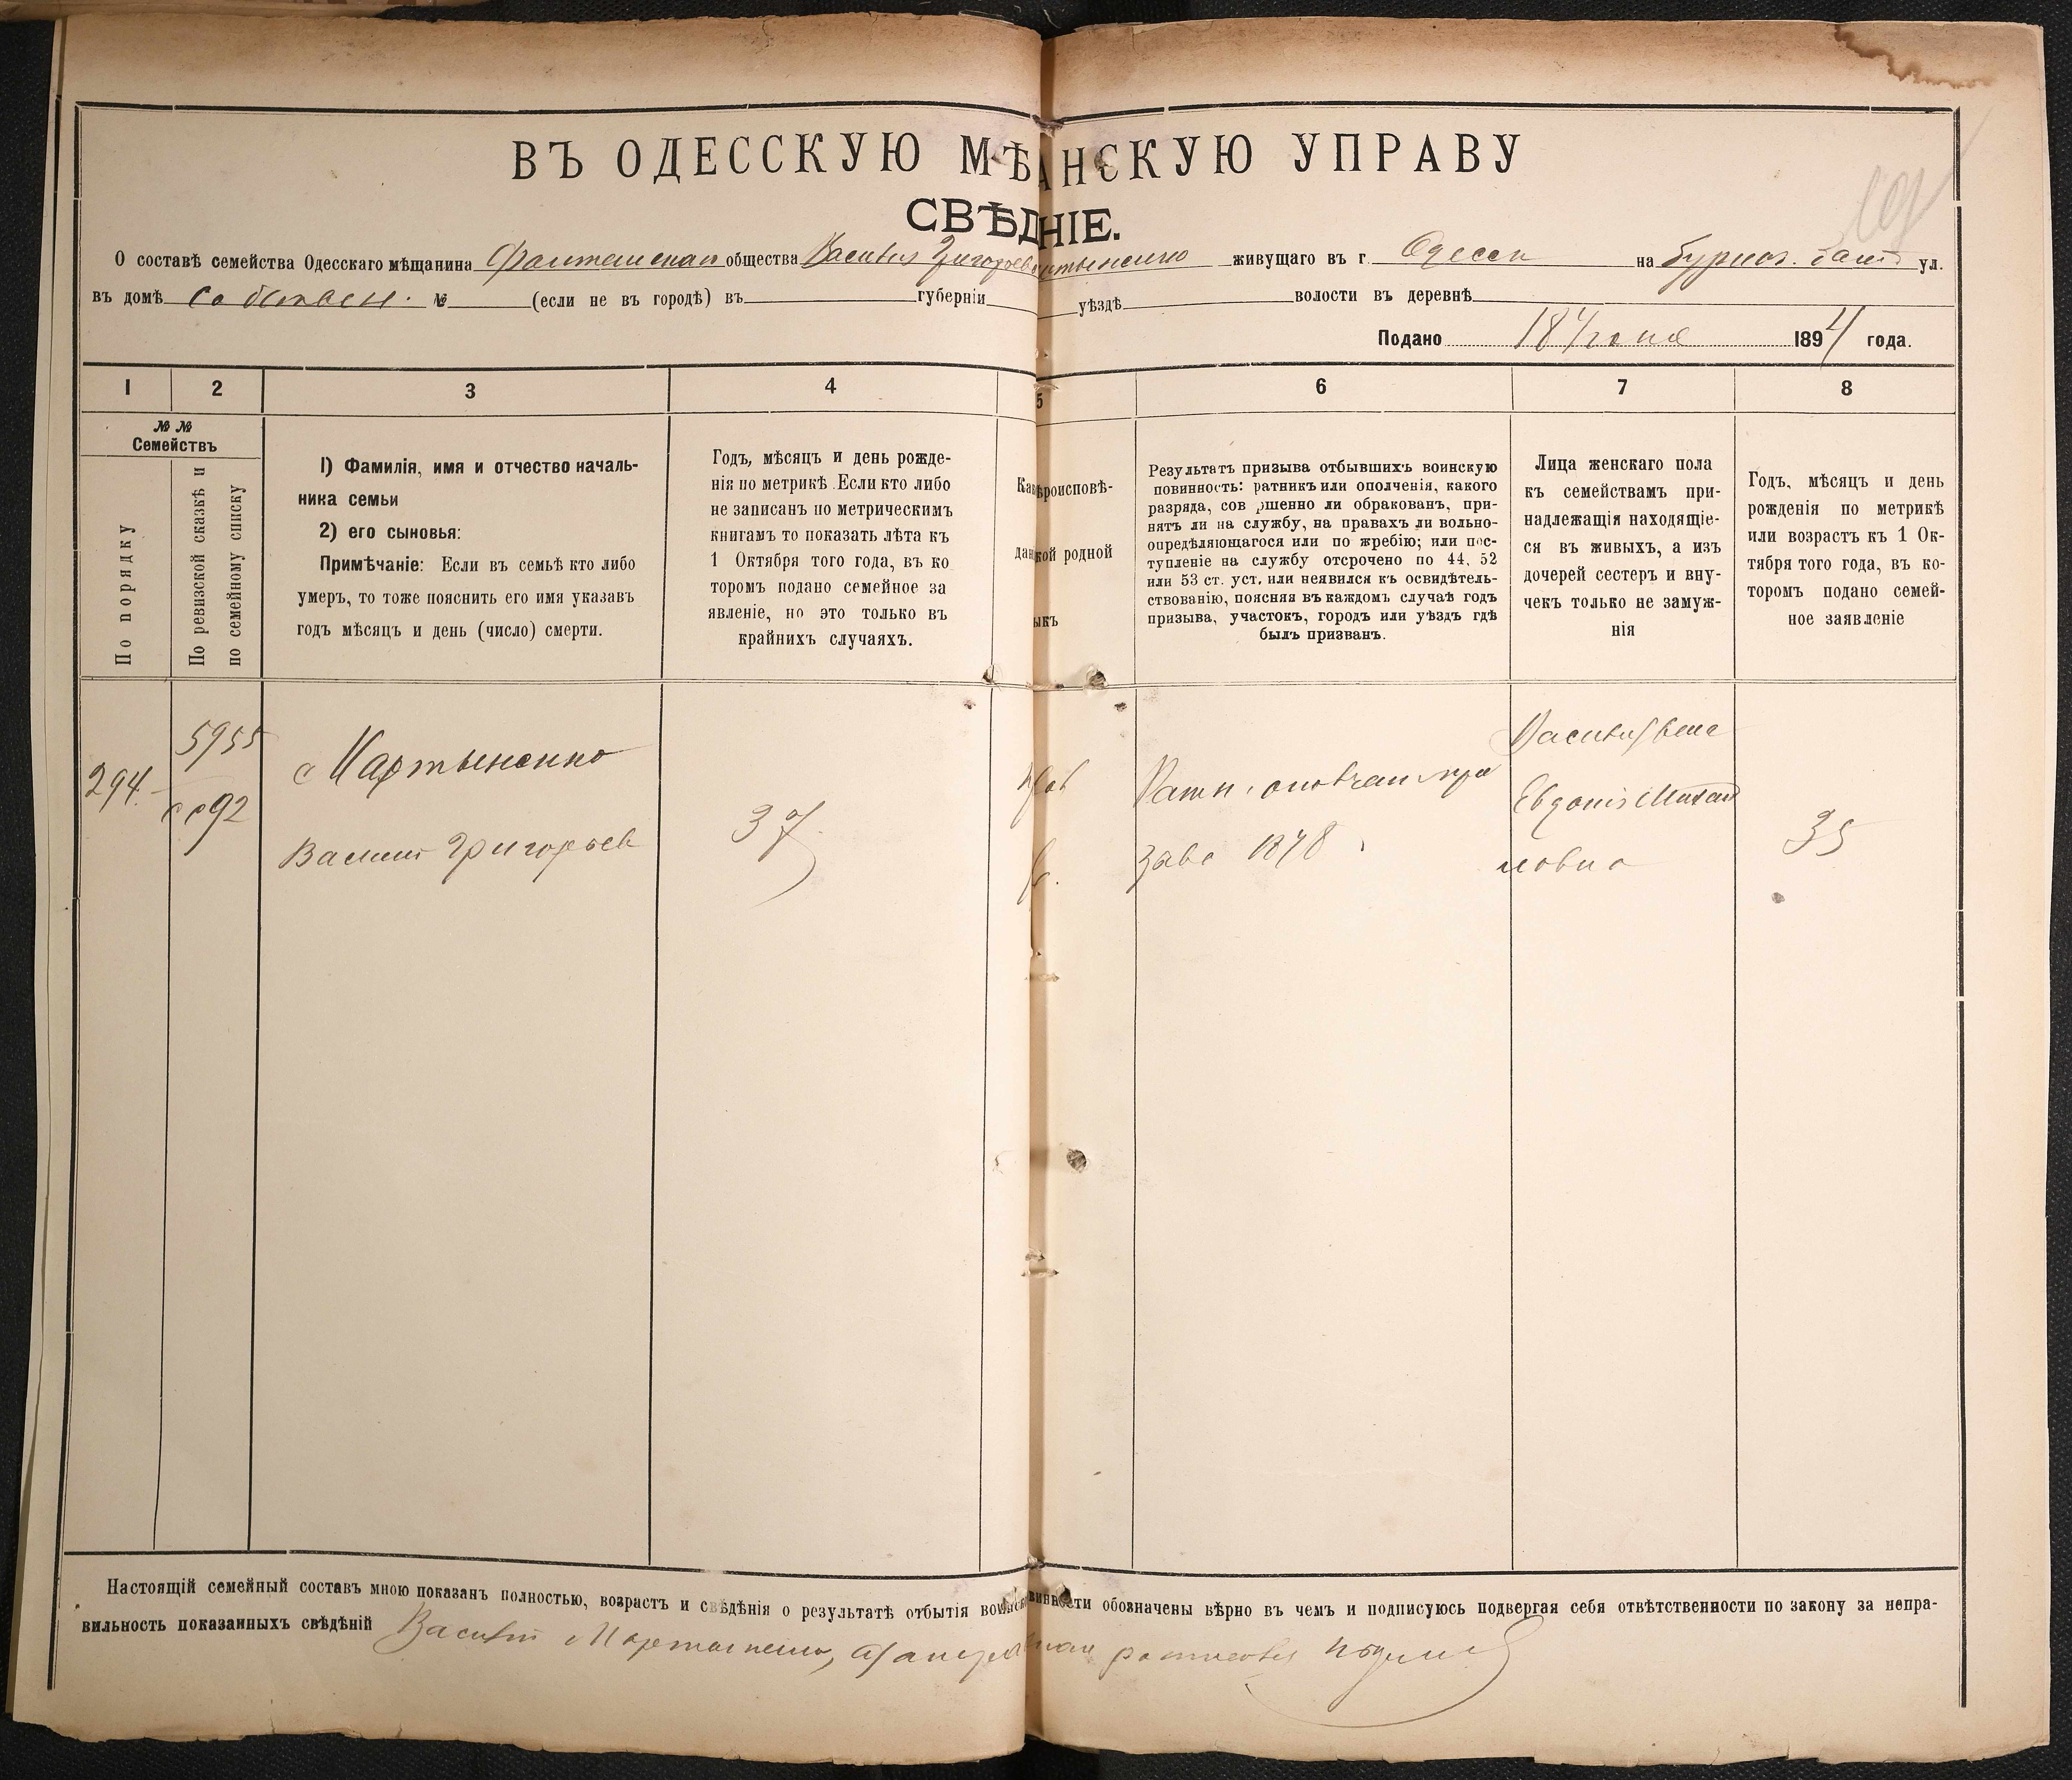 ВЪ ОДЕССКУЮ МѢАНСКУЮ УПРАВУ
СВѢДНІЕ.
О составѣ семейства Одесскаго мѣщанина общества Василія Григорьев живущаго въ г. Одесси на ул.
въ домѣ собствен. № (если не въ городѣ) въ губерніи уѣздѣ волости въ деревнѣ
Подано 18 Іюня 1894 года.
1 2 3 4 5 6 7 8
№ № Семействъ
По порядку
По ревизской сказкѣ и
по семейному списку
1) Фамилія, имя и отчество началь-
ника семьи
2) его сыновья:
Примѣчаніе: Если въ семьѣ кто либо
умеръ, то тоже пояснить его имя указавъ
годъ мѣсяцъ и день (число) смерти.
Годъ, мѣсяцъ и день рожде-
нія по метрикѣ. Если кто либо
не записанъ по метрическимъ
книгамъ то показать лѣта къ
1 Октября того года, въ ко
торомъ подано семейное за
явленіе, но это только въ
крайнихъ случаяхъ.
Каѣроисповѣ-
данкой родной
ыкъ
Результатъ призыва отбывшихъ воинскую
повинность: ратникъ или ополченія, какого
разряда, сов ршенно ли обракованъ, при-
нятъ ли на службу, на правахъ ли вольно-
опредѣляющагося или по жребію; или пос-
тупленіе на службу отсрочено по 44, 52
или 53 ст. уст. или неявился къ освидѣтель-
ствованію, поясняя въ каждомъ случаѣ годъ
призыва, участокъ, городъ или уѣздъ гдѣ
былъ призванъ.
Лица женскаго пола
къ семействамъ при-
надлежащія находящіе-
ся въ живыхъ, а изъ
дочерей сестеръ и вну-
чекъ только не замуж-
нія
Годъ, мѣсяцъ и день
рожденія по метрикѣ
или возрастъ къ 1 Ок-
тября того года, въ ко-
торомъ подано семей-
ное заявленіе
294.
5955
Мартыненко
Василій Григорьев
37
прав
Ратн. ополчен при
зыва 1878
Василія жена
Евдокія Михай
ловна
35
Настоящій семейный составъ мною показанъ полностью, возрастъ и свѣдѣнія о результатѣ отбытія воинсквинности обозначены вѣрно въ чемъ и подписуюсь подвергая себя отвѣтственности по закону за непра-
вильность показанныхъ свѣдѣній Василій Мартыненко,